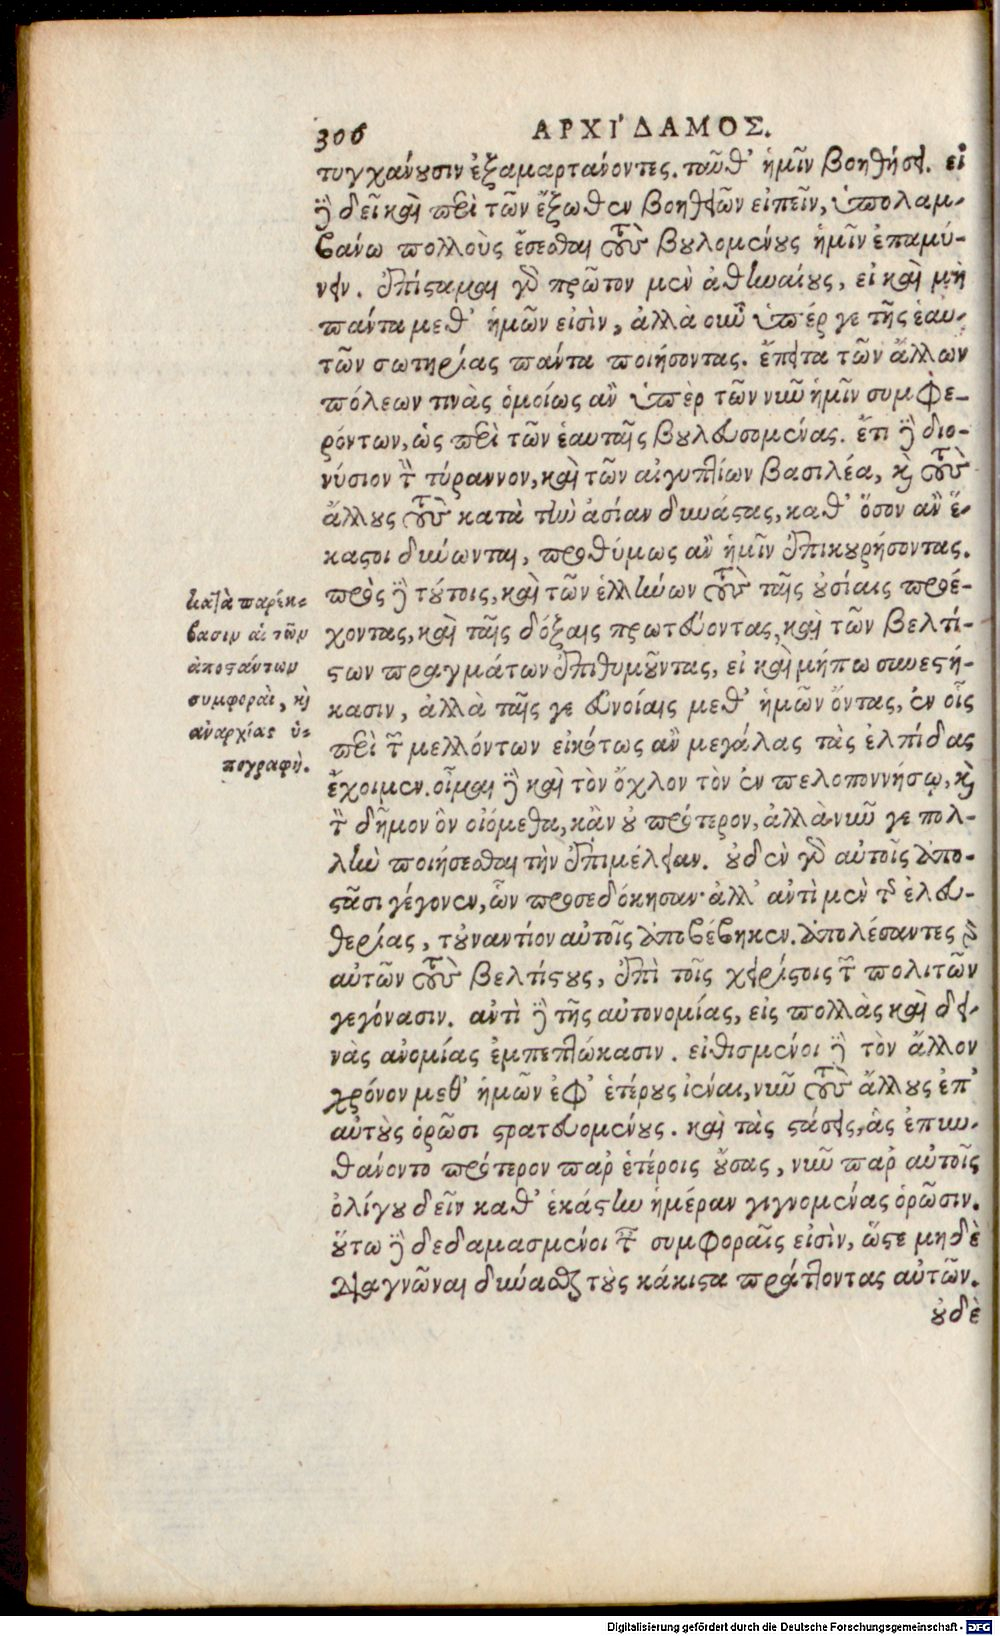 306 ΑΡΧΙΔΑΜΟΣ.
τυγχάνουσιν ἐξαμαρτάνοντες. ταῦθ' ἡμῖν βοηθήσει. εἰ
δὲ δεῖ καὶ περὶ τῶν ἔξωθεν βοηθειῶν εἰπεῖν, ὑπολαμ-
βάνω πολλοὺς ἔσεσθαι τοὺς βουλομένους ἡμῖν ἐπαμύ-
νειν. ἐπίσταμαι γὰρ πρῶτον μὲν ἀθηναίους, εἰ καὶ μὴ
πάντα μεθ' ἡμῶν εἰσὶν, ἀλλὰ οὖν ὑπέρ γε τῆς ἑαυ-
τῶν σωτηρίας πάντα ποιήσοντας. ἔπειτα τῶν ἄλλων
πόλεων τινὰς ὁμοίως ἂν ὑπὲρ τῶν νῦν ἡμῖν συμφε-
ρόντων, ὡς περὶ τῶν ἑαυταῖς βουλευσομένας. ἔτι δὲ διο-
νύσιον τὸν τύραννον, καὶ τῶν αἰγυπτίων βασιλέα, καὶ τοὺς
ἄλλους τοὺς κατὰ τὴν ἀσίαν δυνάστας, καθ' ὅσον ἂν ἕ-
καστοι δύνωνται, προθύμως ἂν ἡμῖν ἐπικουρήσοντας.
πρὸς δὲ τούτοις, καὶ τῶν ἑλλήνων τοὺς ταῖς οὐσίαις προέ-
χοντας, καὶ ταῖς δόξαις πρωτεύοντας, καὶ τῶν βελτί-
στων πραγμάτων ἐπιθυμοῦντας, εἰ καὶ μήπω συνεστή-
κασιν, ἀλλὰ ταῖς γε εὐνοίαις μεθ' ἡμῶν ὄντας, ἐν οἷς
περὶ τῶν μελλόντων εἰκότως ἂν μεγάλας τὰς ἐλπίδας
ἔχοιμεν. οἶμαι δὲ καὶ τὸν ὄχλον τὸν ἐν πελοποννήσῳ, καὶ
τὸν δῆμον ὃν οἰόμεθα, κἂν οὐ πρότερον, ἀλλὰ νῦν γε πολ-
λὴν ποιήσεσθαι τὴν ἐπιμέλειαν. οὐδὲν γὰρ αὐτοῖς ἀπο-
στᾶσι γέγονεν, ὧν προσεδόκησαν· ἀλλ' ἀντὶ μὲν τῆς ἐλευ-
θερίας, τοὐναντίον αὐτοῖς ἀποβέβηκεν. ἀπολέσαντες γὰρ
αὐτῶν τοὺς βελτίστους, ἐπὶ τοῖς χειρίστοις τῶν πολιτῶν
γεγόνασιν. ἀντὶ δὲ τῆς αὐτονομίας, εἰς πολλὰς καὶ δει-
νὰς ἀνομίας ἐμπεπτώκασιν. εἰθισμένοι δὲ τὸν ἄλλον
χρόνον μεθ' ἡμῶν ἐφ' ἑτέρους ἰέναι, νῦν τοὺς ἄλλους ἐπ'
αὐτοὺς ὁρῶσι στρατευομένους. καὶ τὰς στάσεις, ἃς ἐπυν-
θάνοντο πρότερον παρ ἑτέροις οὔσας, νῦν παρ αὐτοῖς
ὀλίγου δεῖν καθ' ἑκάστην ἡμέραν γιγνομένας ὁρῶσιν.
οὕτω δὲ δεδαμασμένοι ταῖς συμφοραῖς εἰσὶν, ὥστε μηδὲ
διαγνῶναι δύνασθαι τοὺς κάκιστα πράττοντας αὐτῶν.
οὐδὲ
κατὰ παρέκ-
βασιν αἱ τῶν
ἀποστάντων
συμφοραὶ, καὶ
ἀναρχίας ὑ-
πογραφή.
Digitalisierung gefördert durch die Deutsche Forschungsgemeinschaft - DFG